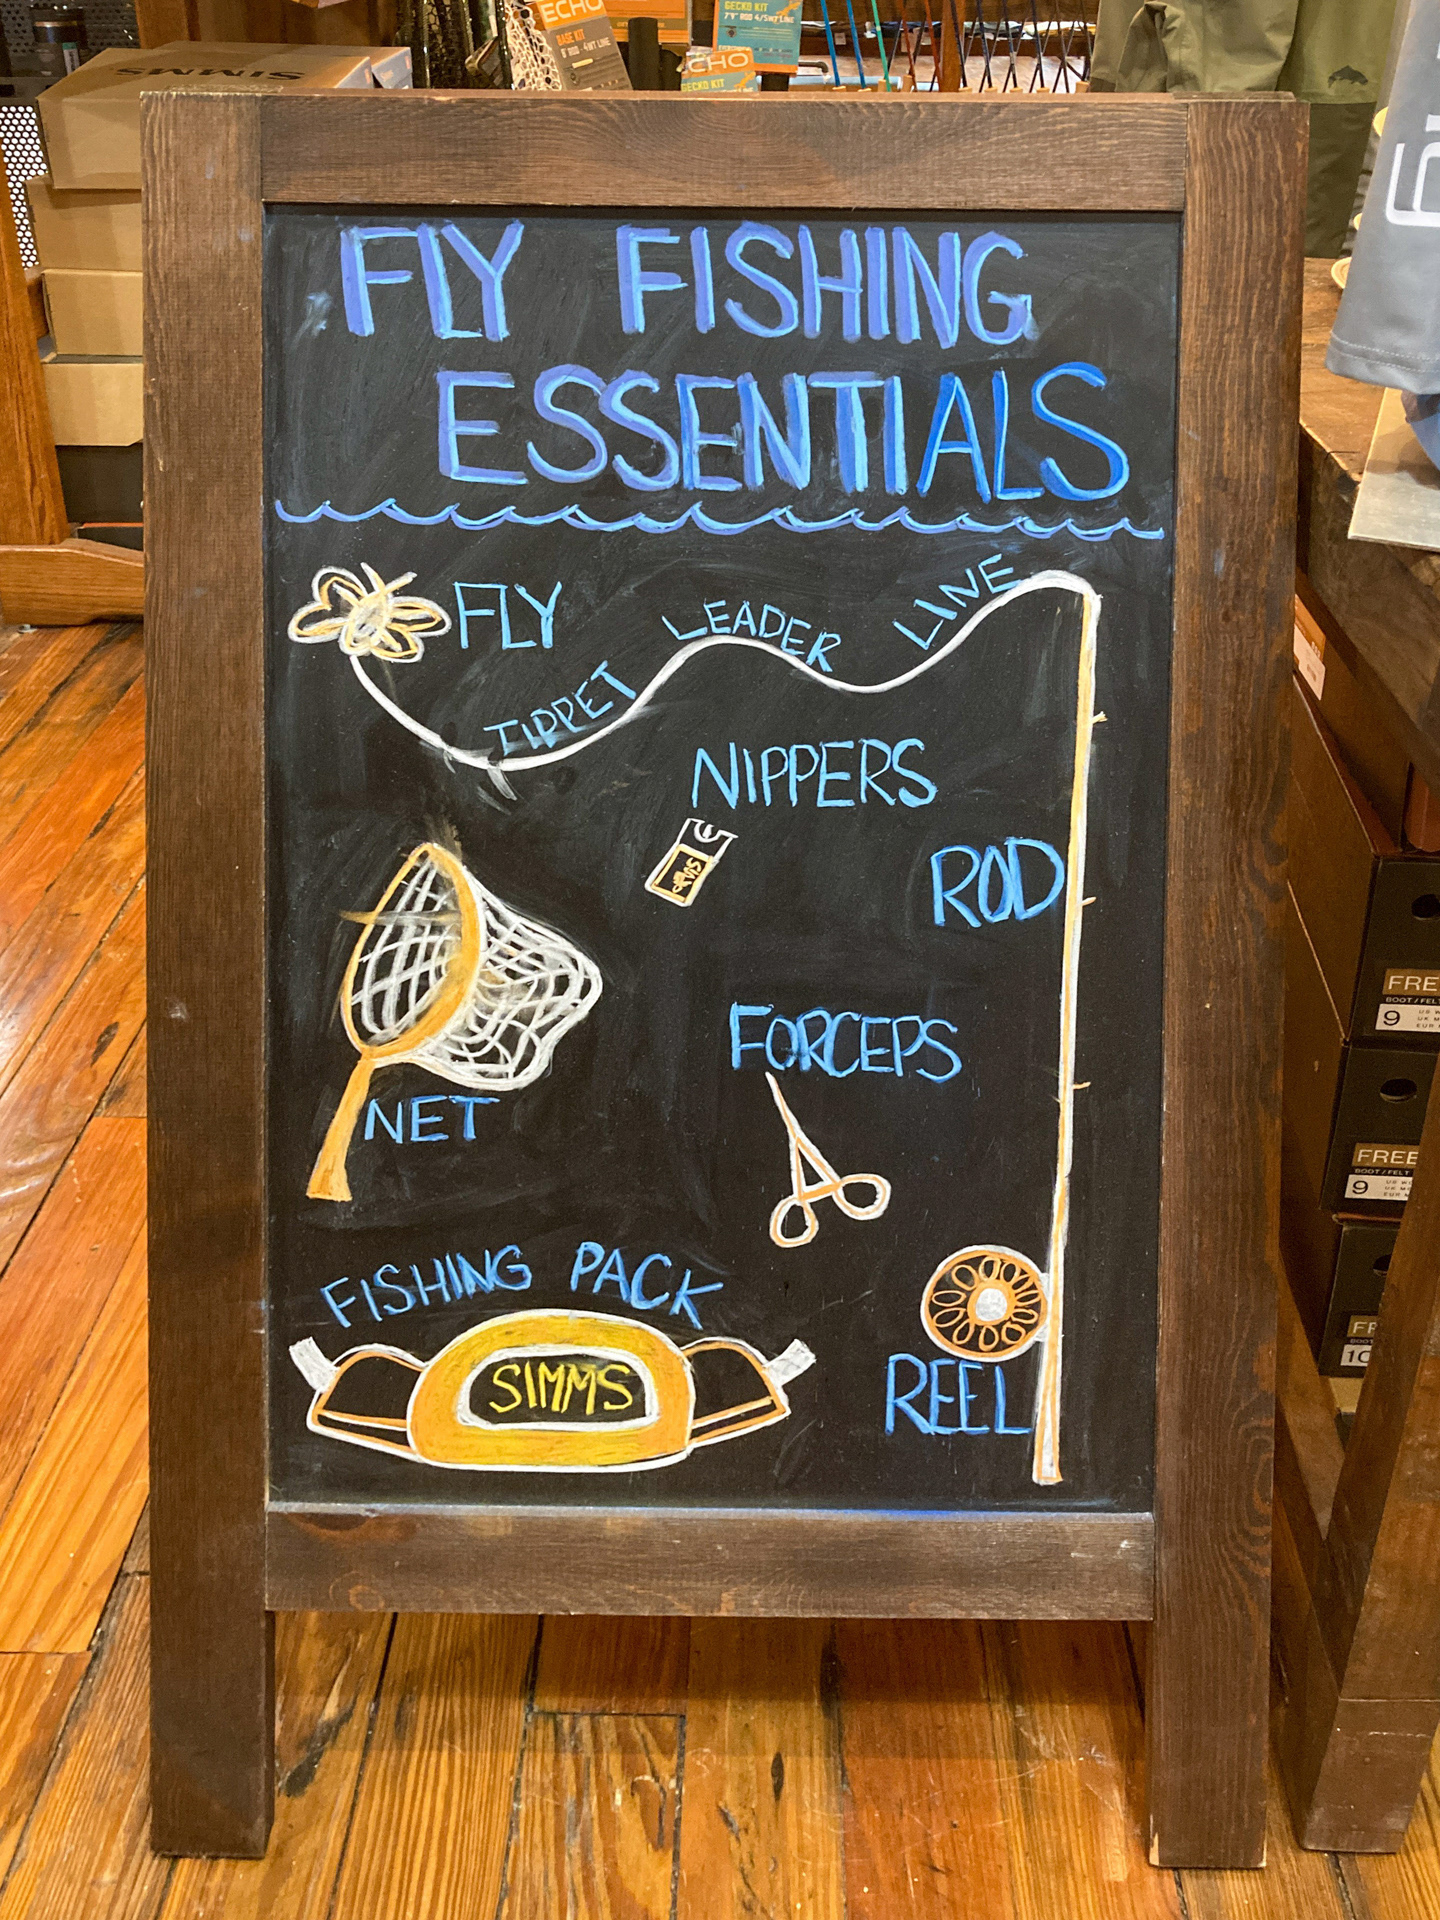 SIMMS
ECHO
BASE KIT
GECKO KIT
7'9" ROD 4/5WT LINE
ECHO
GECKO KIT
FLY FISHING
ESSENTIALS
FLY
TIPPET
LEADER
LINE
NIPPERS
ROD
NET
FORCEPS
FISHING PACK
SIMMS
REEL
FRE
BOOT / FEL
9
FREE
BOOT / FELT
9
FR
10